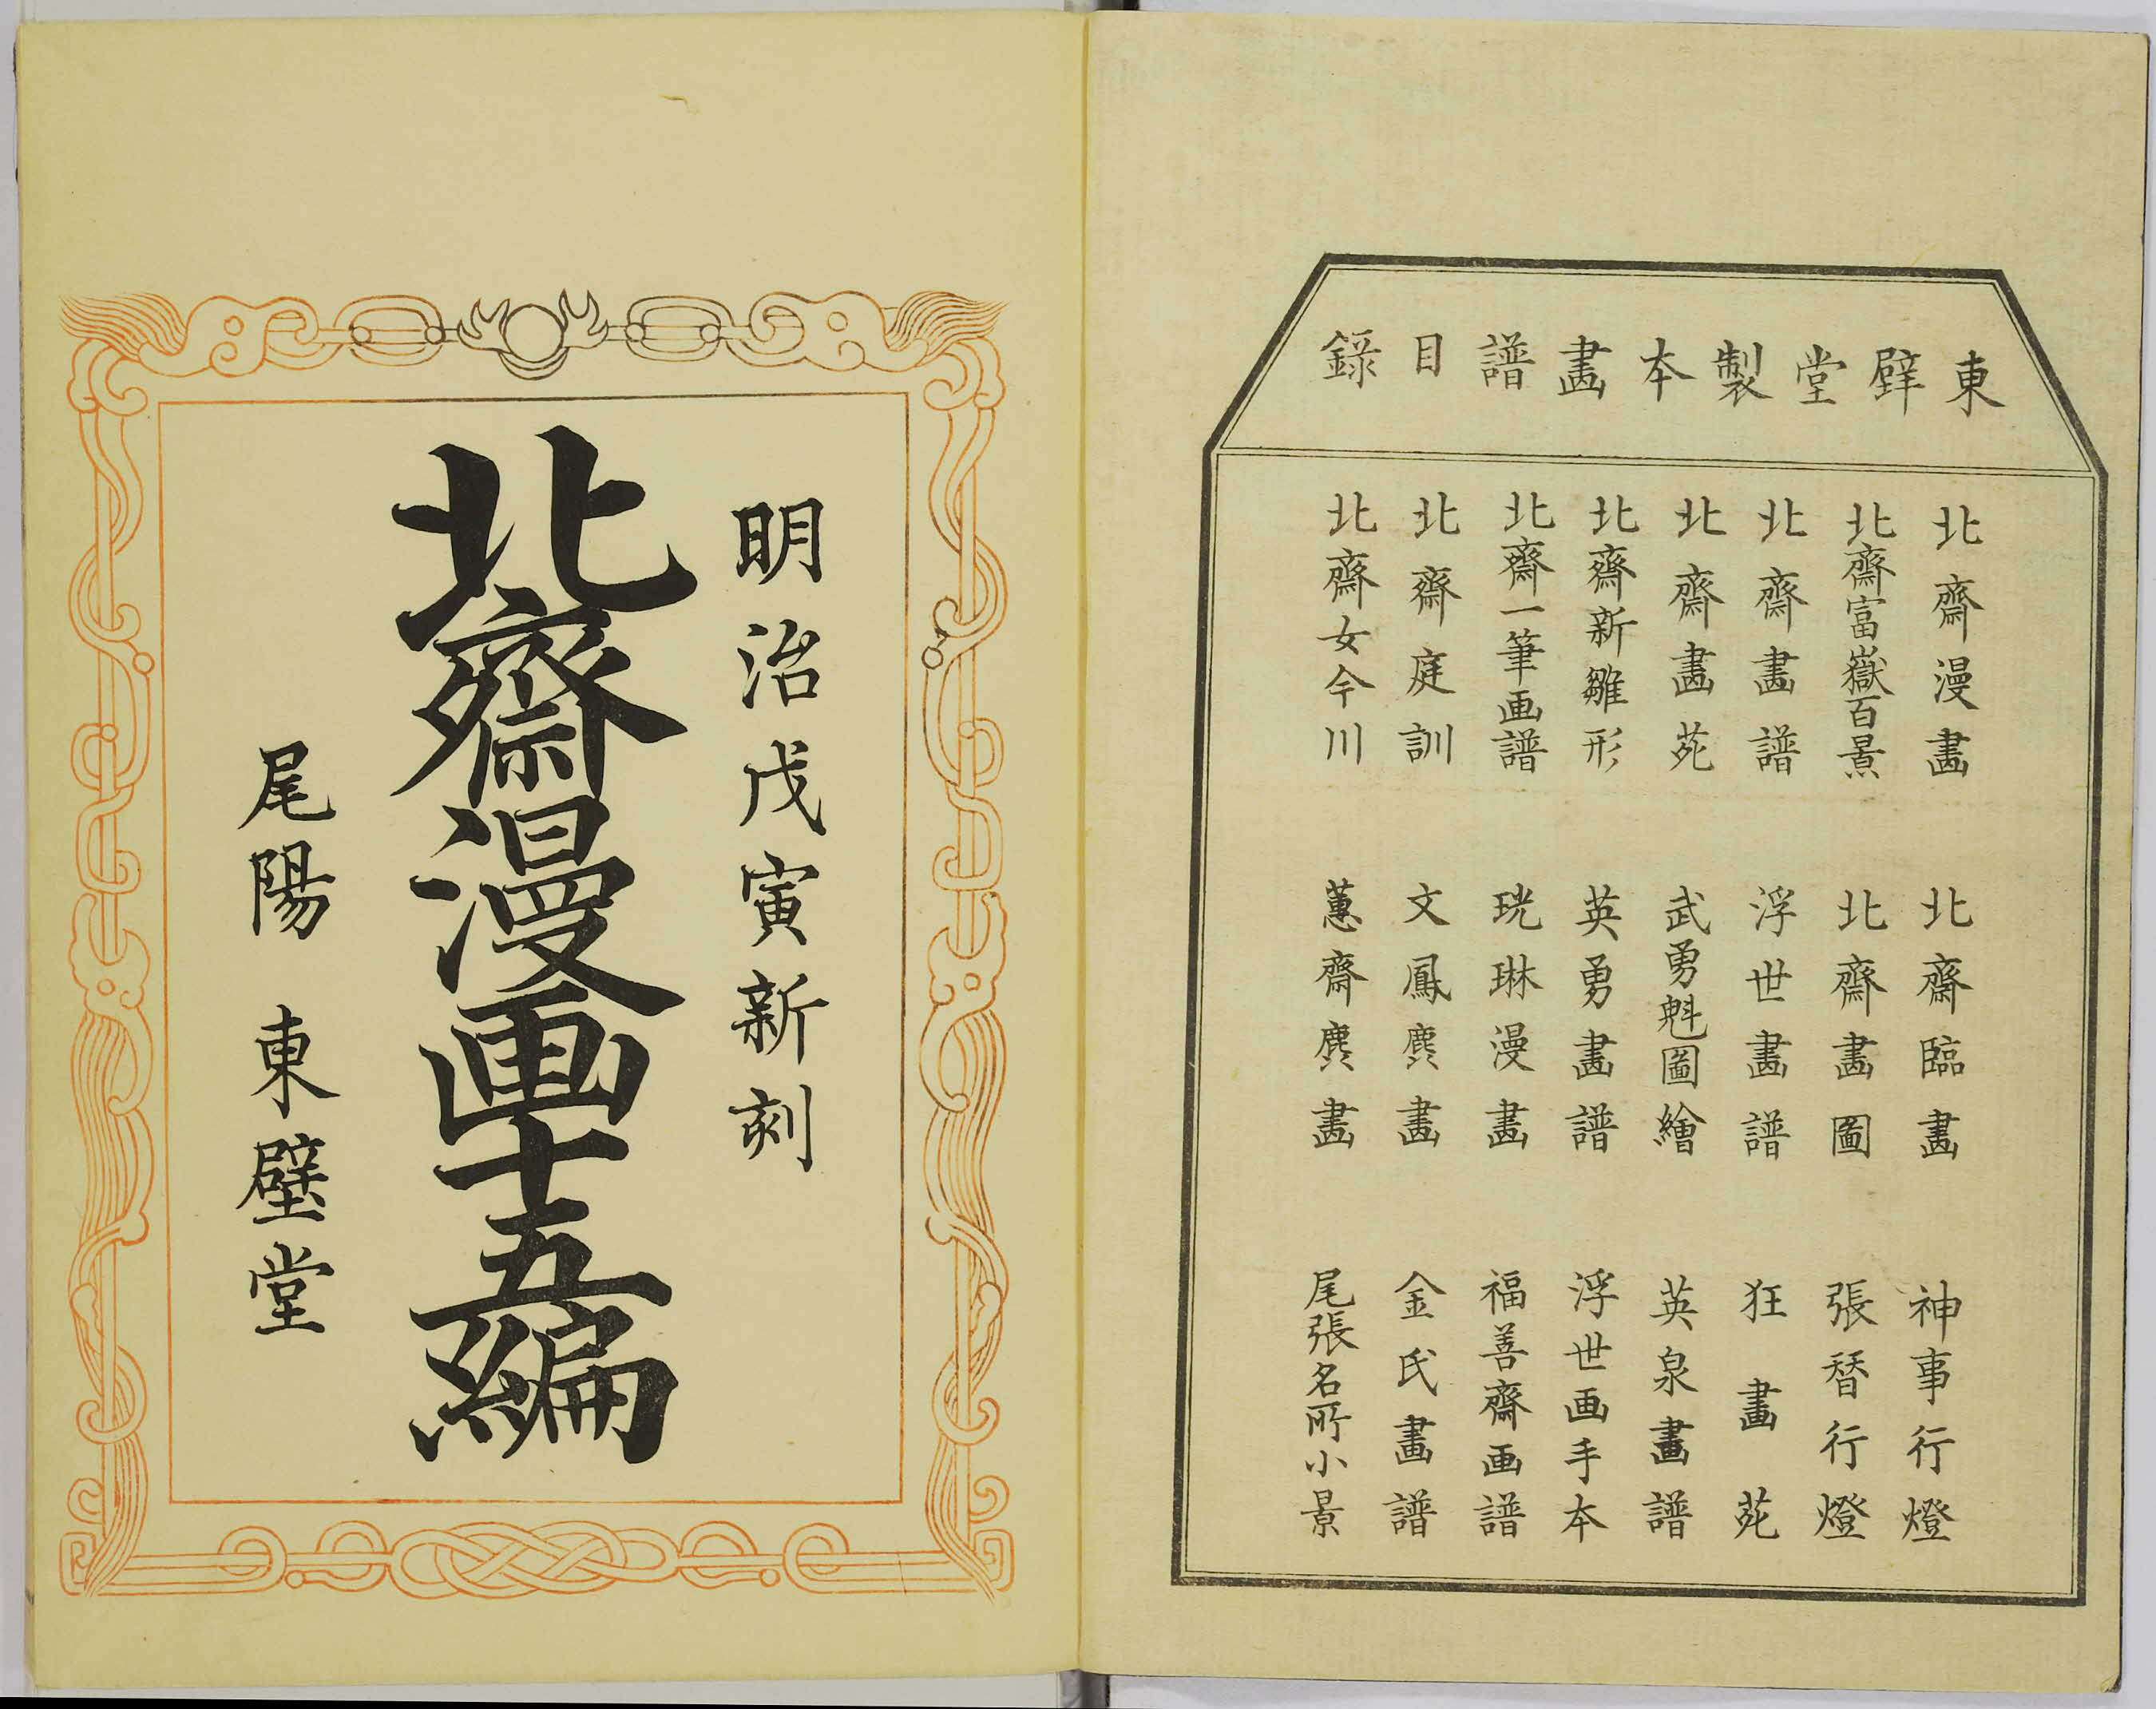 東壁堂製本畫譜目録
北齋漫畫
北齋富嶽百景
北齋畫譜
北齋畫苑
北齋新雛形
北齋一筆画譜
北齋庭訓
北齋女今川
北齋臨畫
北齋畫圖
浮世畫譜
武勇魁圖繪
英勇畫譜
珖琳漫畫
文鳳麁畫
蕙齋麁畫
神事行燈
張替行燈
狂畫苑
英泉畫譜
浮世画手本
福善齋画譜
金氏畫譜
尾張名所小景
明治戊寅新刻
北齋漫画十五編
尾陽 東壁堂